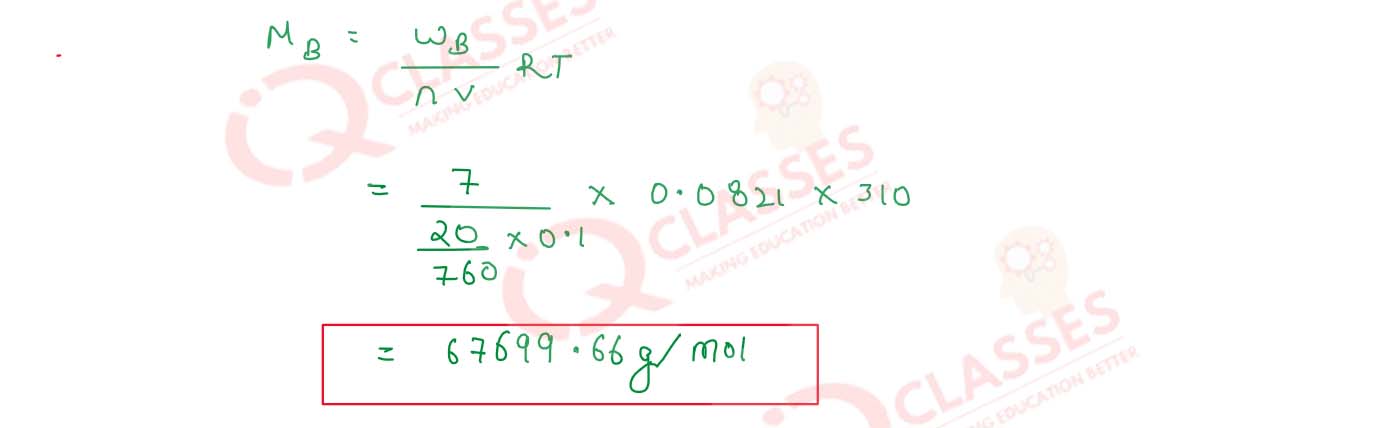 M_B = W_B / n v RT
= 7 / (20/760 × 0.1) × 0.0821 × 310
= 67699.66 g/mol
CLASSES
MAKING EDUCATION BETTER
CLASSES
MAKING EDUCATION BETTER
CLASSES
MAKING EDUCATION BETTER